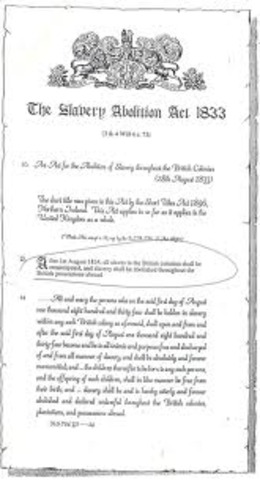 The Slavery Abolition Act 1833
(3 & 4 Will 4 c 73)
An Act for the Abolition of Slavery throughout the British Colonies
(28th August 1833)
The short title was given to this Act by the Short Titles Act 1896,
Northern Ireland. This Act applies in so far as it applies to the
United Kingdom as a whole.
After 1st August 1834, all slaves in the British colonies shall be
emancipated, and slavery shall be abolished throughout the
British possessions abroad
All and every the persons who on the said first day of August
one thousand eight hundred and thirty four shall be holden in slavery
within any such British colony as aforesaid, shall upon and from and
after the said first day of August one thousand eight hundred and
thirty-four become and be to all intents and purposes free and discharged
of and from all manner of slavery, and shall be absolutely and forever
manumitted; and the children thereafter to be born to any such persons,
and the offspring of such children, shall in like manner be free from
their birth; and slavery shall be and is hereby utterly and forever
abolished and declared unlawful throughout the British colonies,
plantations, and possessions abroad.